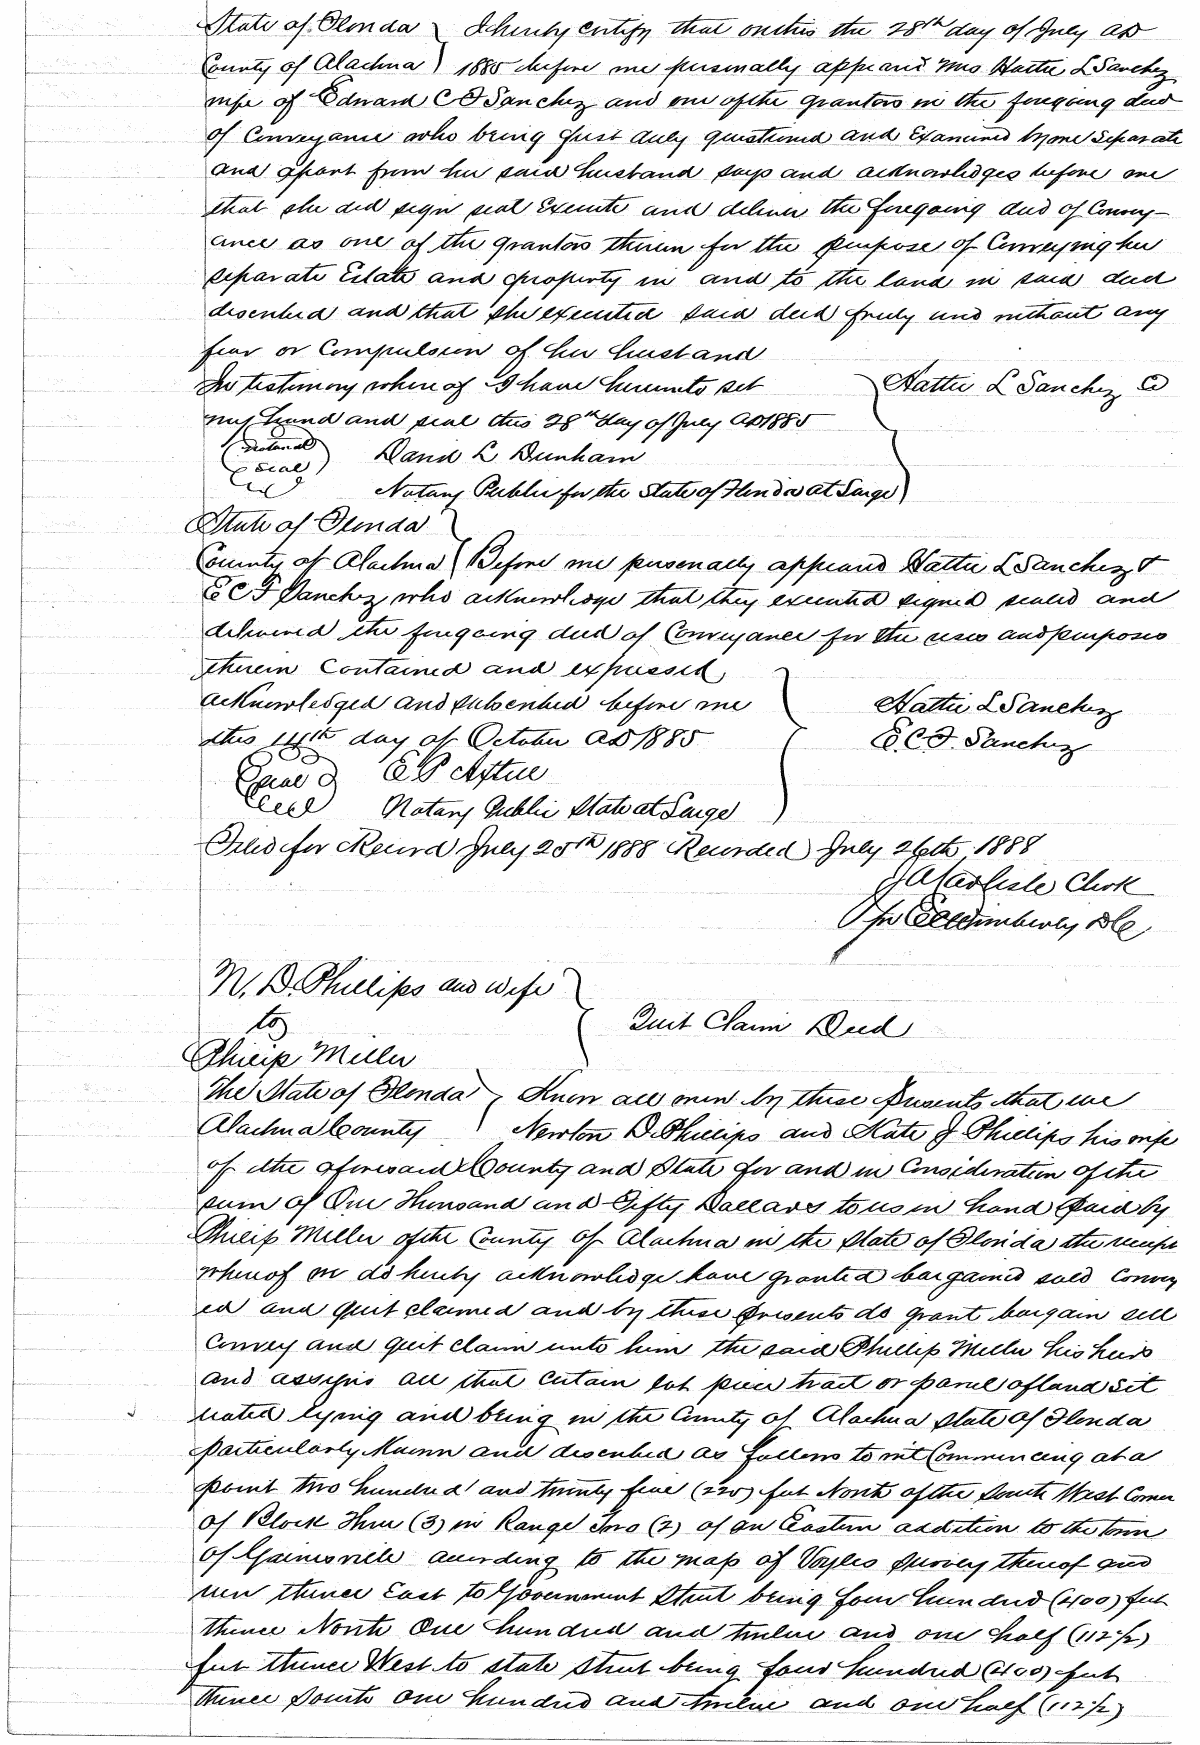 State of Florida } I hereby certify that on this the 28th day of July AD
County of Alachua } 1885 before me personally appeared Mrs Hattie L Sanchez
wife of Edward C F Sanchez and one of the grantors in the foregoing deed
of Conveyance who being first duly questioned and Examined by me separate
and apart from her said husband says and acknowledges before me
that she did sign seal Execute and deliver the foregoing deed of Convey-
ance as one of the grantors therein for the purpose of Conveying her
separate Estate and property in and to the land in said deed
described and that she executed said deed freely and without any
fear or Compulsion of her husband
In testimony whereof I have hereunto set } Hattie L Sanchez
my hand and seal this 28th day of July AD 1885
(Notarial David L Dunham
(seal) Notary Public for the State of Florida at Large)
State of Florida
County of Alachua } Before me personally appeared Hattie L Sanchez &
E C F Sanchez who acknowledge that they executed signed sealed and
delivered the foregoing deed of Conveyance for the uses and purposes
therein Contained and expressed
acknowledged and subscribed before me } Hattie L Sanchez
this 14th day of October AD 1885 E. C. F. Sanchez
Seal E P
Notary Public State at Large
Filed for Record July 25th 1888 Recorded July 26th 1888
J A Carlisle Clerk
Per Wimberly D C
N. D. Phillips and wife
to } Quit Claim Deed
Philip Miller
The State of Florida } Know all men by these presents that we
Alachua County } Newton D. Phillips and Kate J. Phillips his wife
of the aforesaid County and State for and in Consideration of the
sum of One Thousand and Fifty Dollars to us in hand paid by
Philip Miller of the County of Alachua in the State of Florida the receipt
whereof we do hereby acknowledge have granted bargained sold Convey
ed and quit claimed and by these presents do grant bargain sell
Convey and quit claim unto him the said Phillip Miller his heirs
and assigns all that certain lot piece tract or parcel of land sit
uated lying and being in the County of Alachua State of Florida
particularly known and described as follows to wit Commencing at a
point two hundred and twenty five (225) feet North of the South West Corner
of Block Three (3) in Range Two (2) of an Eastern addition to the town
of Gainesville according to the map of Voyles survey thereof and
run thence East to Government Street being four hundred (400) feet
thence North One hundred and twelve and one half (112½)
feet thence West to State Street being four hundred (400) feet
thence South one hundred and twelve and one half (112½)